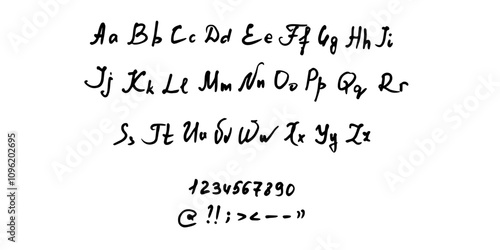 Aa Bb Cc Dd Ee Ff Gg Hh Ii
Jj Kk Ll Mm Nn Oo Pp Qq Rr
Ss Tt Uu Vv Ww Xx Yy Zz
1234567890
@ ?!;><--"
Adobe Stock | #1096202695
Adobe Stock